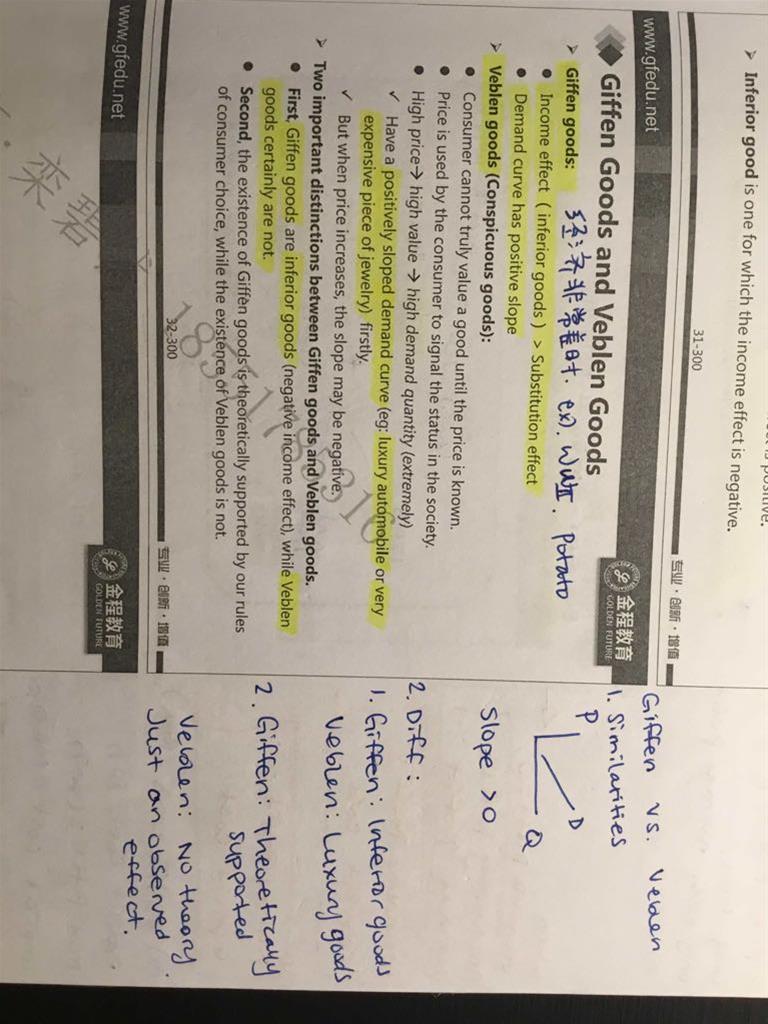 is positive.
➢ Inferior good is one for which the income effect is negative.
31-300
专业·创新·增值
www.gfedu.net
金程教育
GOLDEN FUTURE
Giffen Goods and Veblen Goods
➢ Giffen goods:
经济非常差时. ex). WWII. Potato
• Income effect ( inferior goods ) > Substitution effect
• Demand curve has positive slope
➢ Veblen goods (Conspicuous goods):
• Consumer cannot truly value a good until the price is known.
• Price is used by the consumer to signal the status in the society.
• High price→ high value → high demand quantity (extremely)
✓ Have a positively sloped demand curve (eg: luxury automobile or very
expensive piece of jewelry) firstly.
✓ But when price increases, the slope may be negative.
➢ Two important distinctions between Giffen goods and Veblen goods.
• First, Giffen goods are inferior goods (negative income effect), while Veblen
goods certainly are not.
• Second, the existence of Giffen goods is theoretically supported by our rules
of consumer choice, while the existence of Veblen goods is not.
32-300
专业·创新·增值
www.gfedu.net
金程教育
GOLDEN FUTURE
Giffen vs. Veblen
1. Similarities
P
D
Q
Slope >0
2. Diff:
1. Giffen: Inferior goods
Veblen: Luxury goods
2. Giffen: Theoretically
supported
Veblen: No theory.
Just an observed
effect.